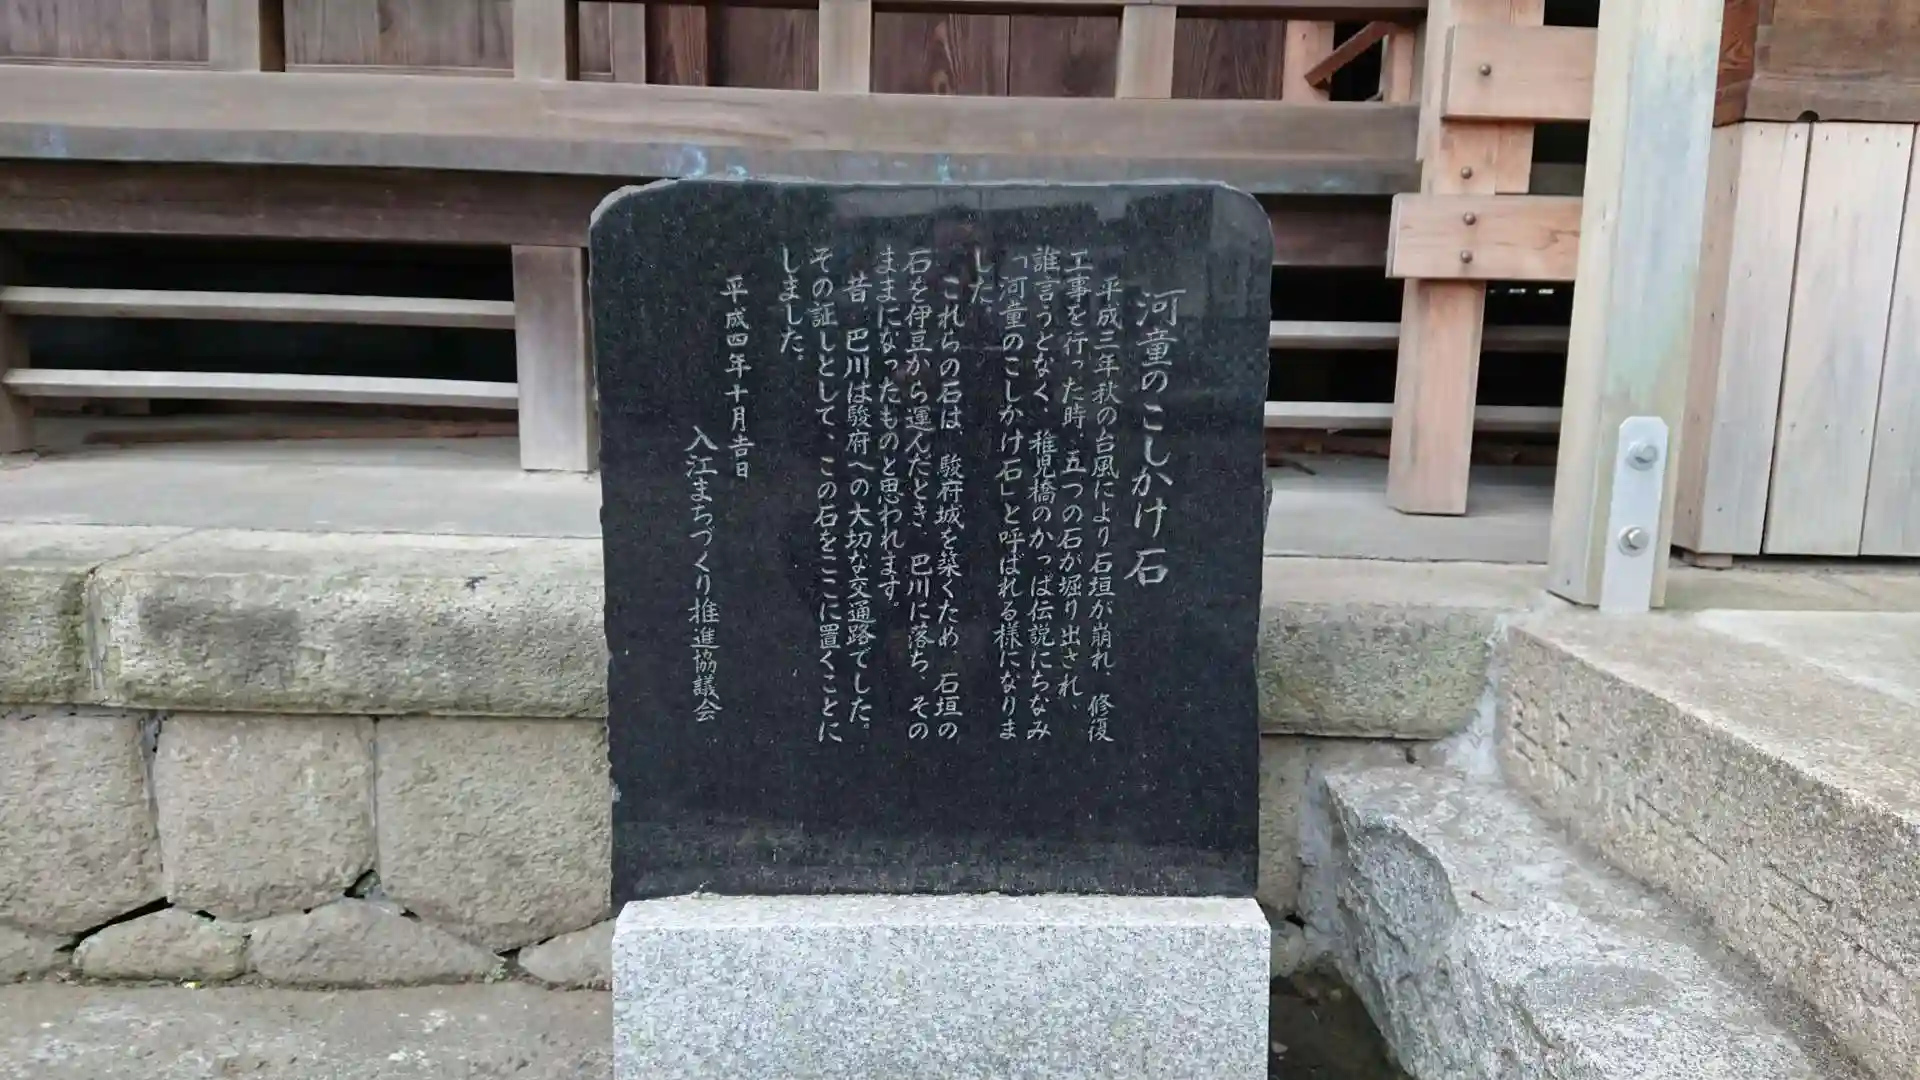 河童のこしかけ石
平成三年秋の台風により石垣が崩れ、修復
工事を行った時、五つの石が堀り出され、
誰言うとなく、稚児橋のかっぱ伝説にちなみ
「河童のこしかけ石」と呼ばれる様になりま
した。
これらの石は、駿府城を築くため、石垣の
石を伊豆から運んだとき、巴川に落ち、その
ままになったものと思われます。
昔、巴川は駿府への大切な交通路でした。
その証しとして、この石をここに置くことに
しました。
平成四年十月吉日
入江まちづくり推進協議会